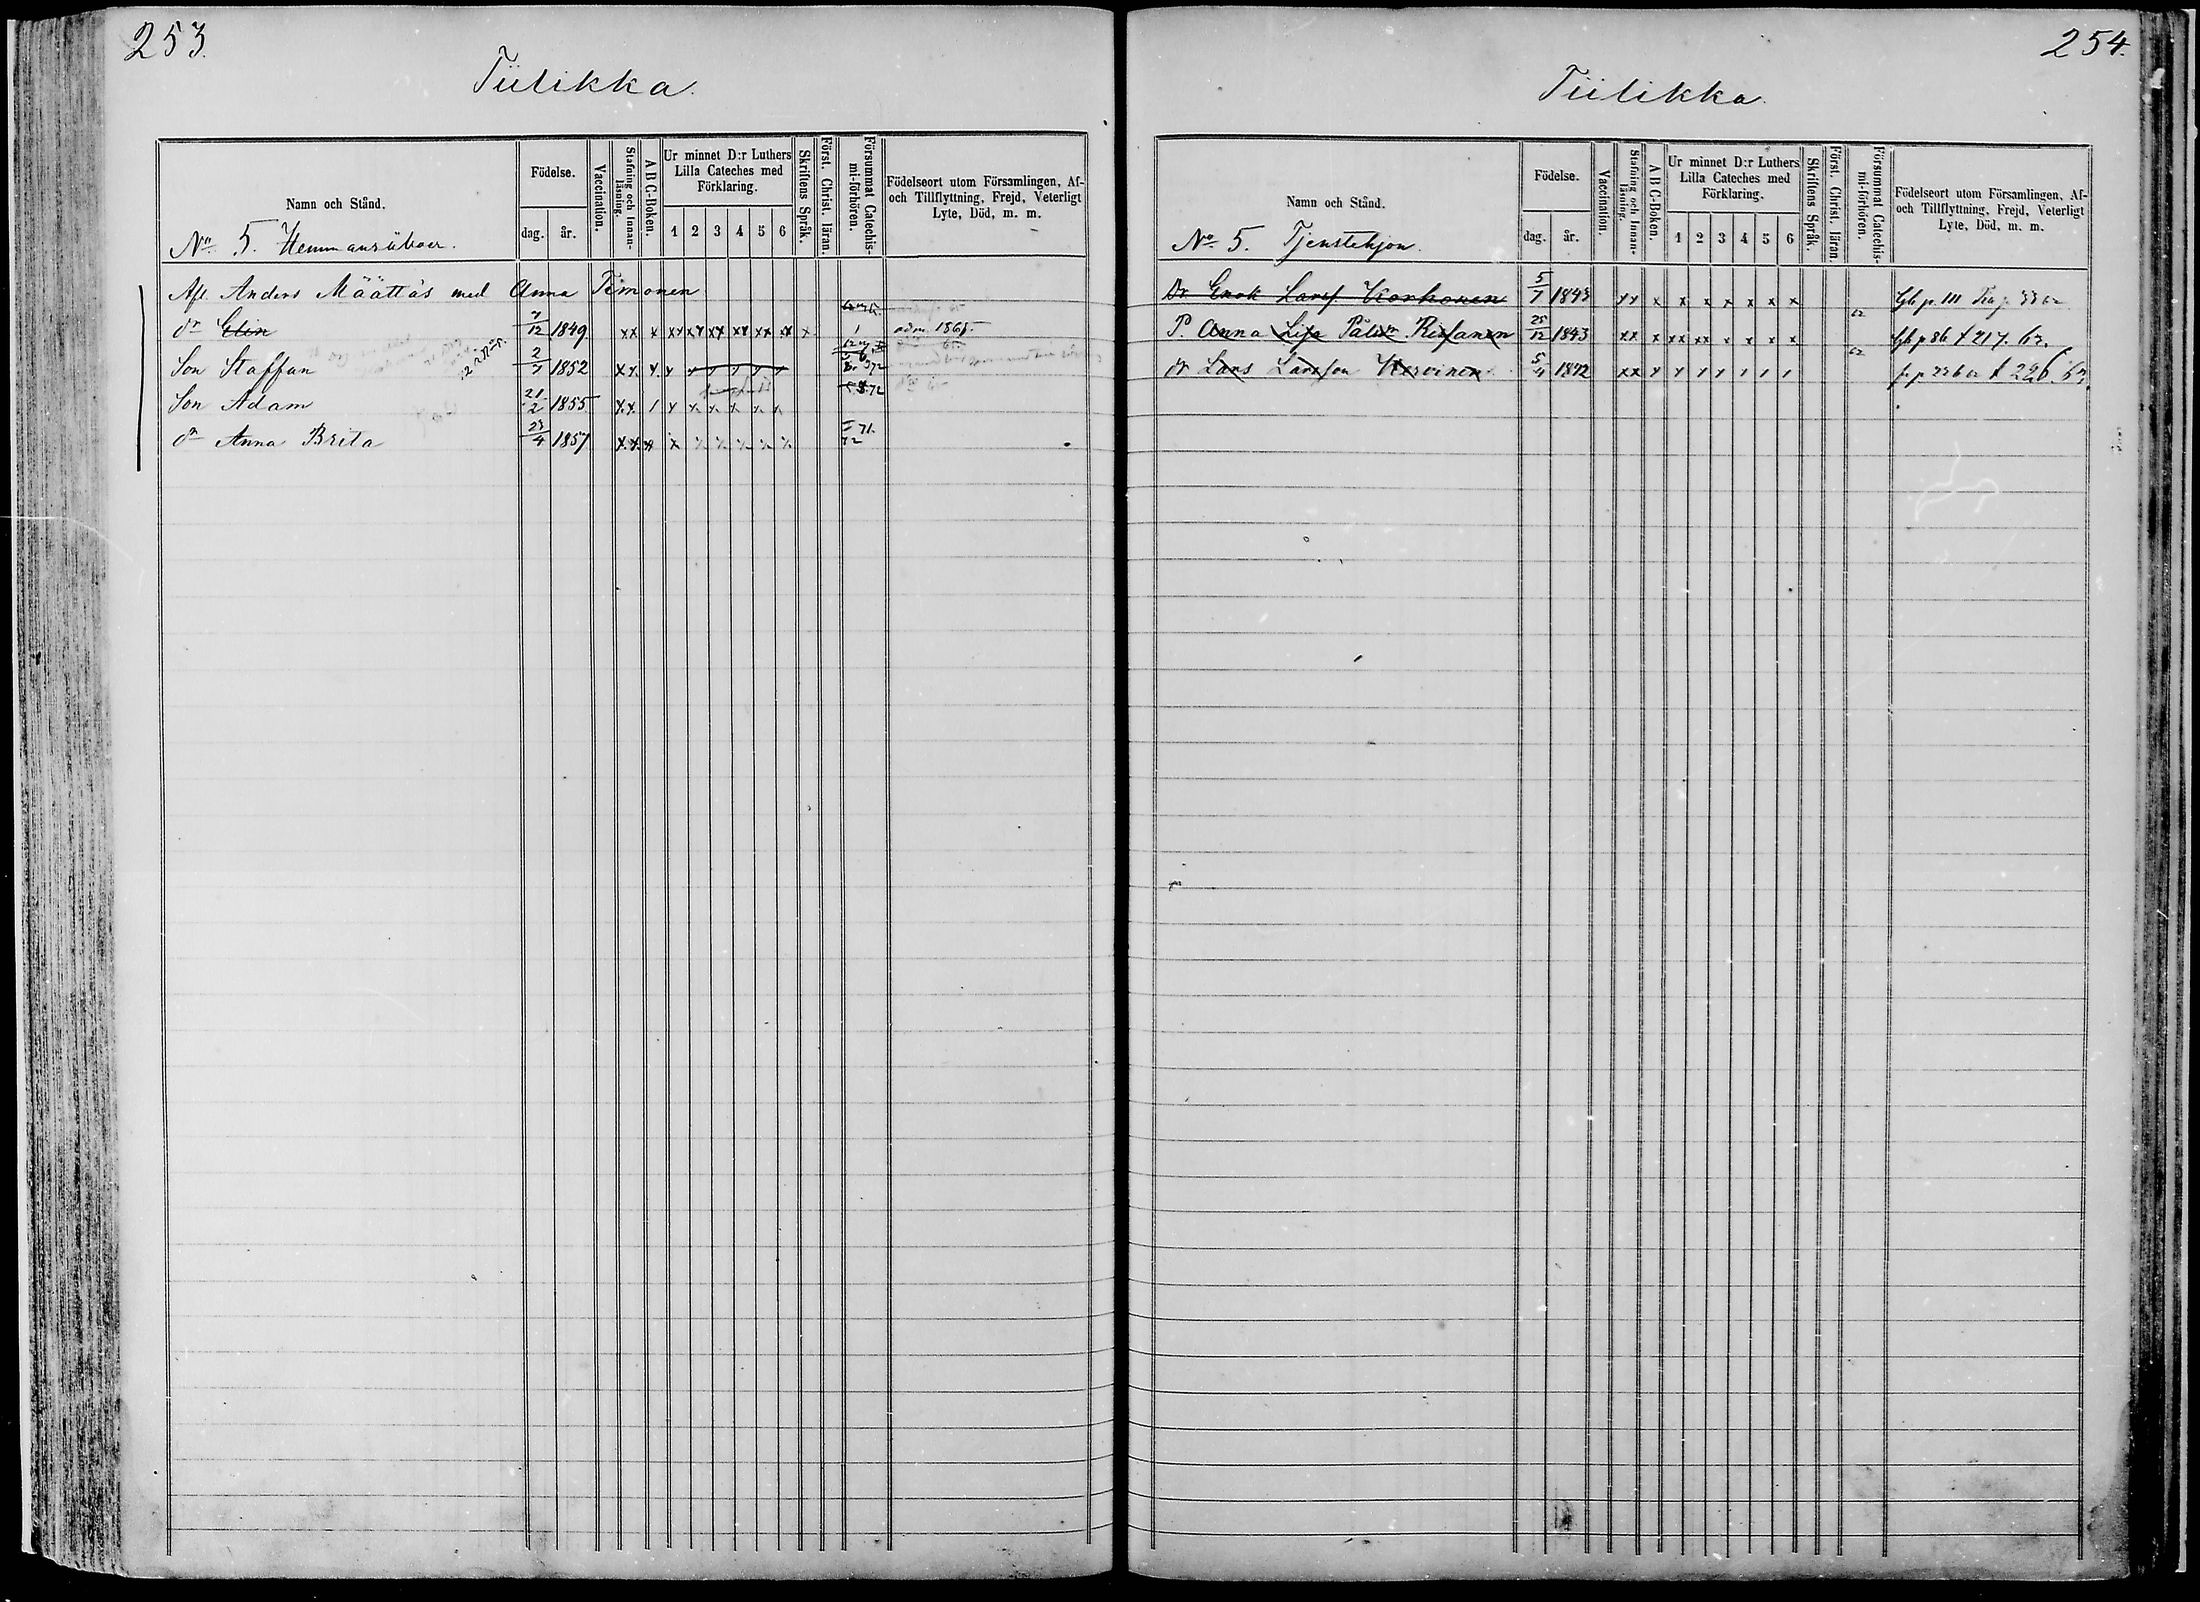 253.
Tiilikka.
Namn och Stånd.
Födelse.
dag. år.
Vaccination.
Stafning och Innan-läsning.
A B C-Boken.
Ur minnet D:r Luthers Lilla Cateches med Förklaring.
1 2 3 4 5 6
Skriftens Språk.
Först. Christ. läran.
Försummat Catechis-mi-förhören.
Födelseort utom Församlingen, Af- och Tillflyttning, Frejd, Veterligt Lyte, Död, m. m.
No 5. Hemmansåboer.
Afl. Anders Määttäs med Anna Timonen
dr Elin 7/12 1849 xx x xx xx xx xx xx xx x 1 adm. 1865
Son Staffan 2/7 1852 xx x x x x x x x
Son Adam 21/2 1855 xx 1 x x x x x x
dr Anna Brita 23/4 1857 xx x x x x x x x 71. 72
254.
Tiilikka.
Namn och Stånd.
Födelse.
dag. år.
Vaccination.
Stafning och Innan-läsning.
A B C-Boken.
Ur minnet D:r Luthers Lilla Cateches med Förklaring.
1 2 3 4 5 6
Skriftens Språk.
Först. Christ. läran
Försummat Catechis-mi-förhören.
Födelseort utom Församlingen, Af- och Tillflyttning, Frejd, Veterligt Lyte, Död, m. m.
No 5. Tjenstehjon.
Dr Enok Larss Korhonen 5/7 1843 xx x x x x x x x 62
P. Anna Lisa Pålsdr Rissanen 25/12 1843 xx x xx xx x x x x 62
dr Lars Larsson Kervinen 5/4 1842 xx x x 1 1 1 1 1